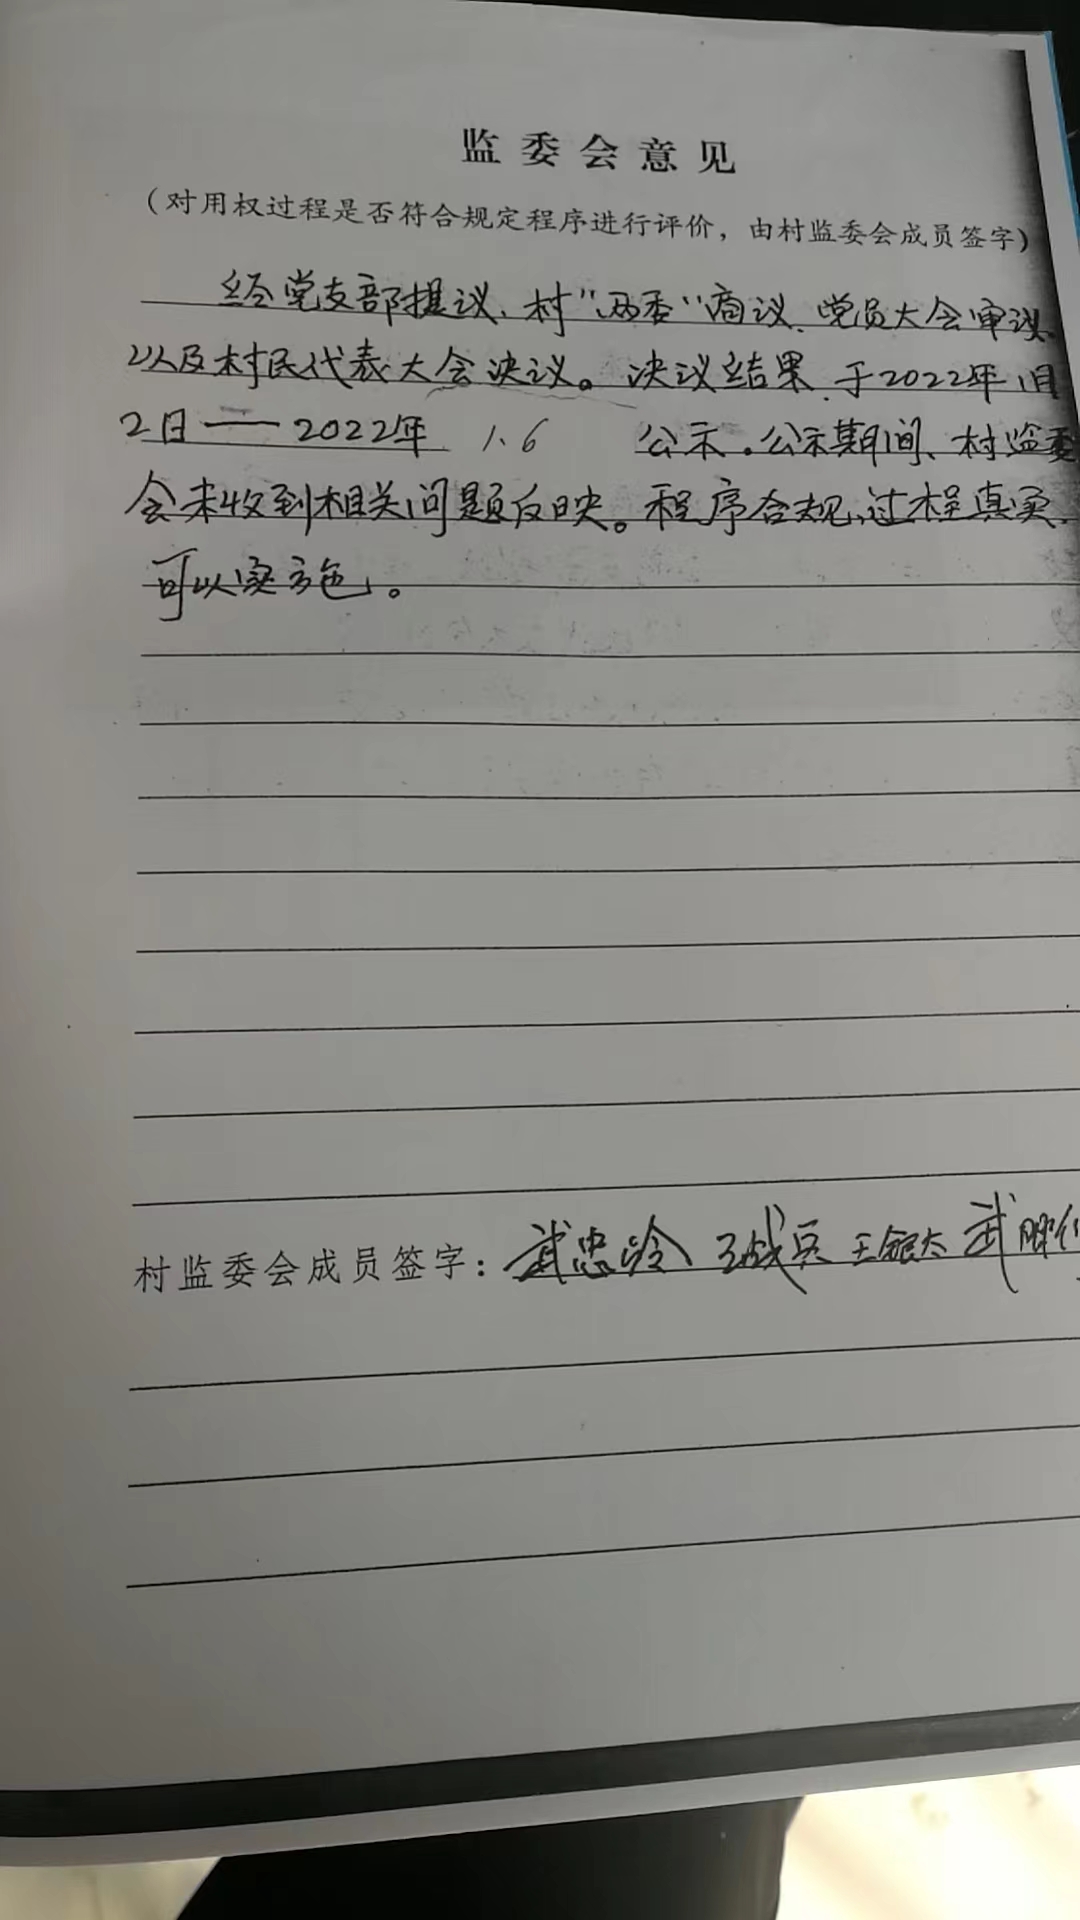 监委会意见
（对用权过程是否符合规定程序进行评价，由村监委会成员签字）
经党支部提议、村“两委”商议、党员大会审议、
以及村民代表大会决议。决议结果、于2022年1月
2日——2022年 1.6 公示。公示期间、村监委
会未收到相关问题反映。程序合规、过程真实、
可以实施。
村监委会成员签字：武忠冷 王战兵 王银太 武